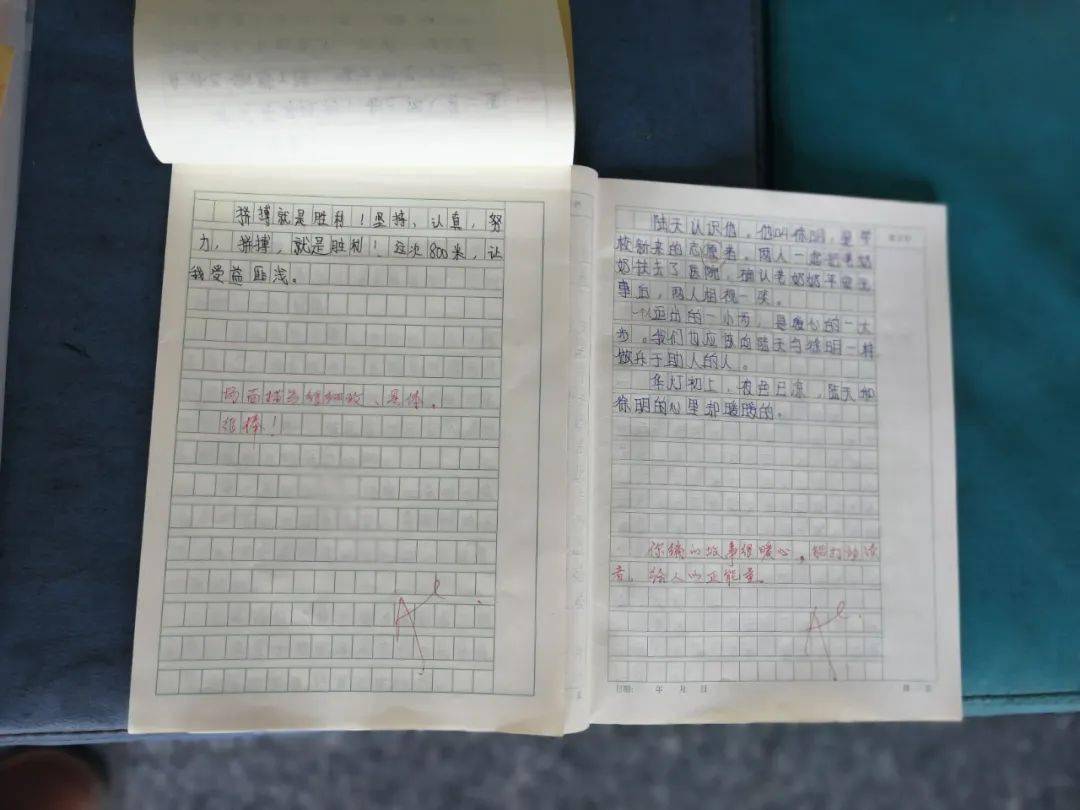 拼搏就是胜利！坚持，认真，努
力，拼搏，就是胜利！这次800米，让
我受益匪浅。
场面描写很细致、具体。
很棒！
陆天认识他，他叫徐明，是学
校新来的志愿者。两人一起把老奶
奶扶去了医院，确认老奶奶平安无
事后，两人相视一笑。
迈出的一小步，是暖心的一大
步。我们也应该向陆天与徐明一样
做乐于助人的人。
华灯初上，夜色已凉，陆天和
徐明的心里却暖暖的。
你编的故事很暖心，能打动读
者，给人以正能量。
日期： 年 月 日
第 页